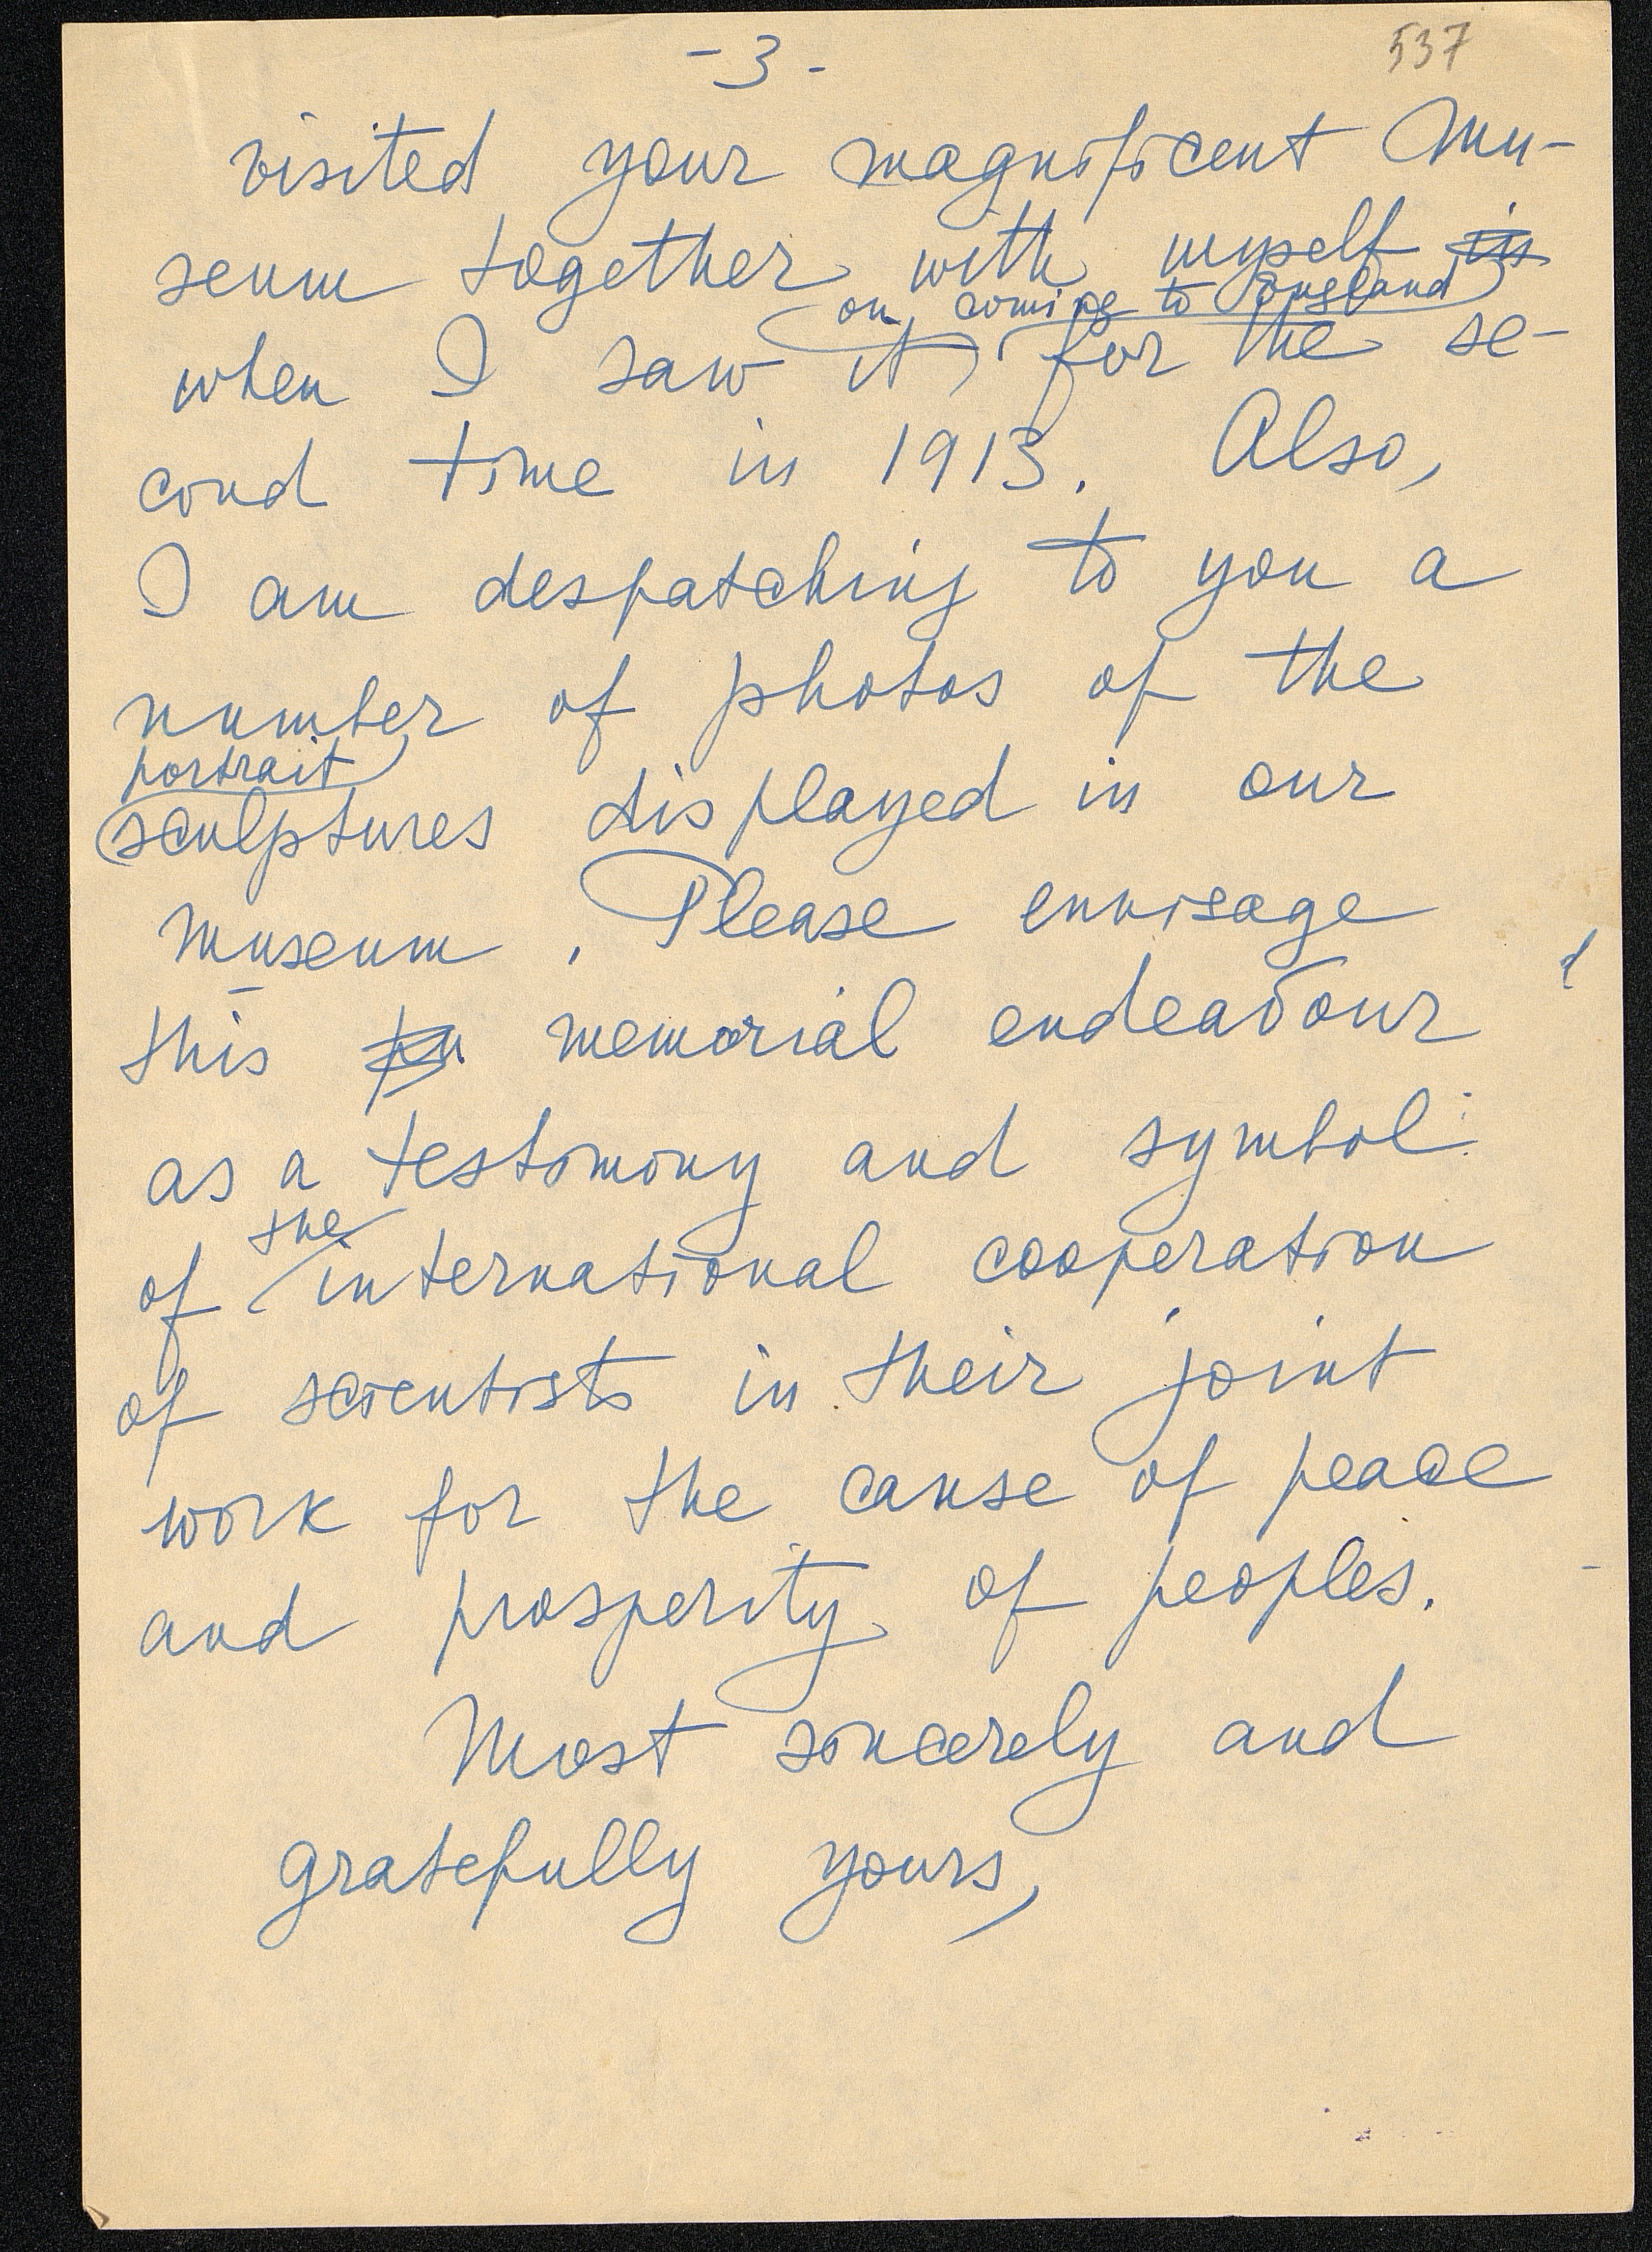 - 3 -
537
visited your magnificent Mu-
seum together with myself in
on coming to England
when I saw it, for the se-
cond time in 1913. Also,
I am despatching to you a
number of photos of the
portrait
sculptures displayed in our
Museum. Please envisage
this memorial endeavour
as a testimony and symbol
the
of international cooperation
of scientists in their joint
work for the cause of peace
and prosperity of peoples.
Most sincerely and
gratefully yours,